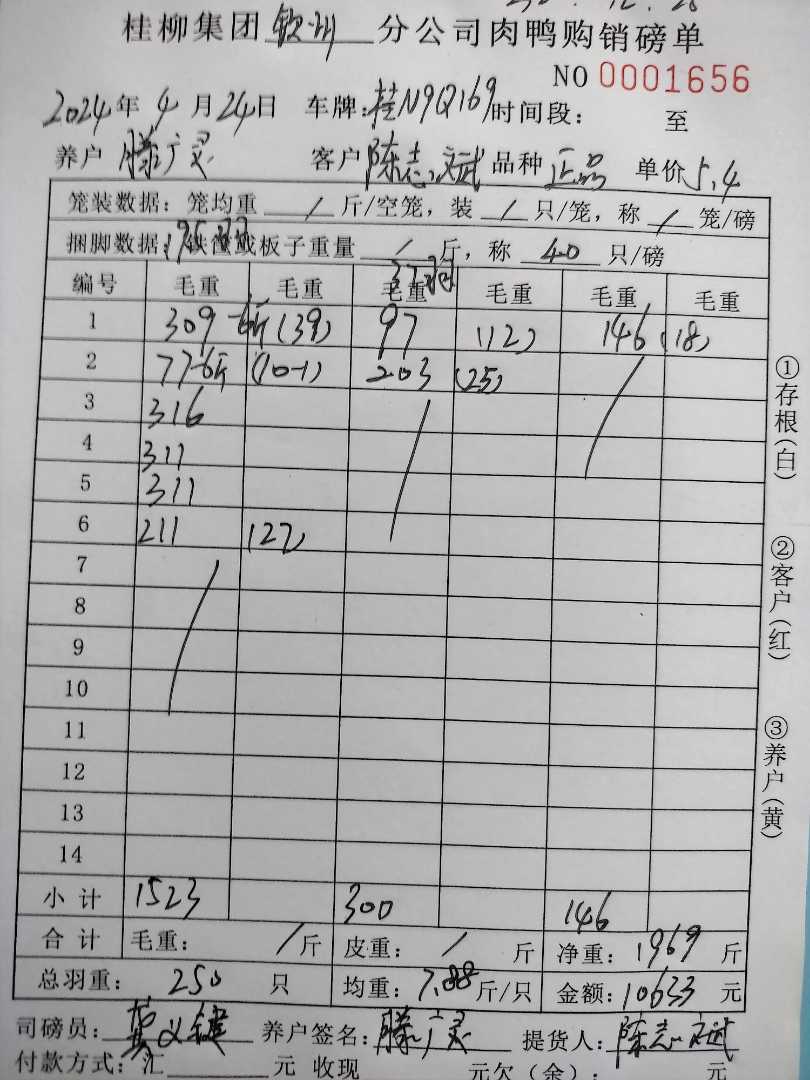 桂柳集团 钦州 分公司肉鸭购销磅单
NO 0001656
2024年4月24日 车牌:桂N9Q169 时间段: 至
养户 滕广灵 客户 陈志斌 品种 正品 单价5.4
笼装数据: 笼均重 / 斤/空笼, 装 / 只/笼, 称 / 笼/磅
捆脚数据: 铁筐或板子重量 / 斤, 称 40 只/磅
编号 毛重 毛重 毛重 毛重 毛重 毛重
1 309-6斤 (39) 97 (12) 146 (18)
2 77-6斤 (10-1) 203 (25)
3 316
4 311
5 311
6 211 (27)
7
8
9
10
11
12
13
14
小计 1523 300 146
合计 毛重: / 斤 皮重: / 斤 净重: 1969 斤
总羽重: 250 只 均重: 7.88 斤/只 金额: 10633 元
司磅员: 义键 养户签名: 滕广灵 提货人: 陈志斌
付款方式: 汇 元 收现 元欠(余): 元
①存根(白)
②客户(红)
③养户(黄)